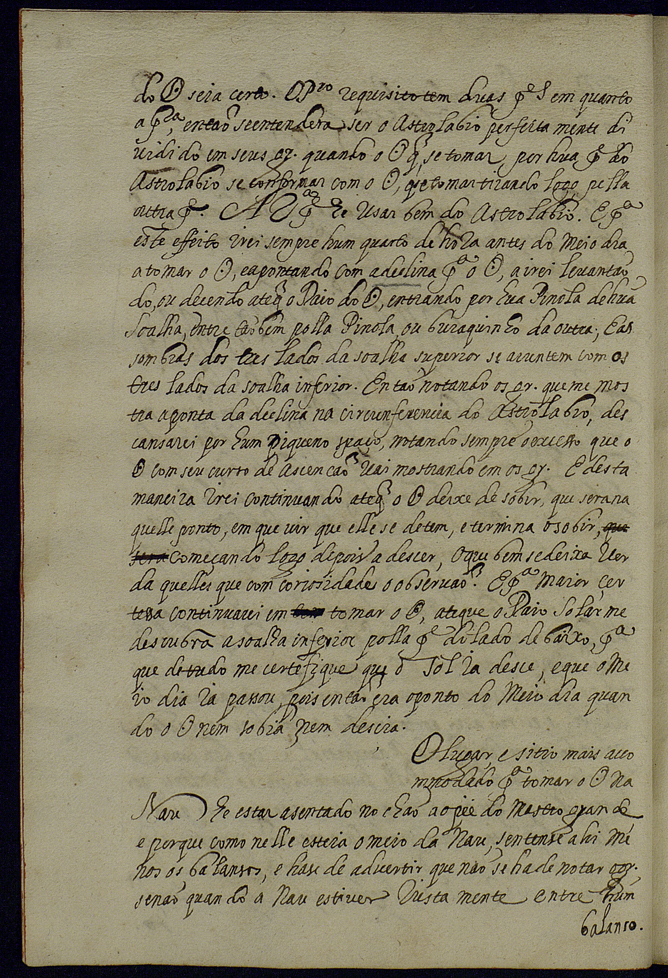 do ☉ seia certo. O Pro requisito tem duas ptes em quanto
a pra, entaõ se entendera ser o Astrolabio perfeita mente di
uidido em seus gr. quando o ☉ q̃ se tomar, por hũa pte do
Astrolabio se conformar com o ☉, que tomar tirando logo pella
outra pte. A 2ª pte he Vsar bem do Astrolabio. E pª
este effeito irei sempre hum quarto de hora antes do Meio dia
a tomar o ☉, e apontando com a declina pª o ☉, a irei leuantaõ
do, ou decendo ateq̃ o Raio do ☉, entrando por hũa Pinola de hũa
Soalha, entre taõ bem polla Pinola, ou buraquinho da outra; E as
sombras dos tres lados da soalha superior se aiuntem com os
tres lados da soalha inferior. Entaõ notando os gr. que me mos
tra a ponta da declina na circunferencia do Astrolabio, des
cansarei por hum piqueno spaço, notando sempre o excesso que o
☉ com seu curto de Ascencaõ uai mostrando em os gr. E desta
maneira irei continuando ateq̃ o ☉ deixe de sobir, que sera na
quelle ponto, em que uir que elle se detem, e termina o sobir, que
sera começando logo depois a descer, o que bem se deixa Ver
da quelles que com coriosidade o obseruaõ. E pª Maior cer
tesa continuarei em tomar o ☉, ateque o Raio Solar me
descubra a soalha inferior polla pte do lado de baixo, pª
que de tudo me certefique que o Sol ia desce, e que o Me
io dia ia passou, pois entaõ era o ponto do Meio dia quan
do o ☉ nem sobia, nem descia.
O lugar, e sitio mais acco
mmodado pª tomar o ☉ na
Nau he estar asentado no chaõ ao pee do Mastro grande
e porque como nelle esteia o meio da Nau, sentense ahi me
nos os balansos, e hase de aduertir que naõ se ha de notar gr.
senaõ quando a Nau estiver Iusta mente entre hum
balanso.